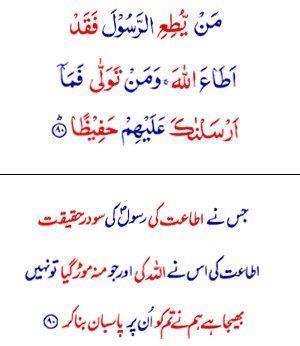 مَنْ يُّطِعِ الرَّسُوْلَ فَقَدْ
اَطَاعَ اللّٰهَ ۚ وَمَنْ تَوَلّٰى فَمَاۤ
اَرْسَلْنٰكَ عَلَيْهِمْ حَفِيْظًا ؕ ۸۰
جس نے اطاعت کی رسولؐ کی سو درحقیقت
اطاعت کی اس نے اللہ کی اور جو منہ موڑ گیا تو نہیں
بھیجا ہے ہم نے تم کو اُن پر پاسبان بنا کر ۸۰